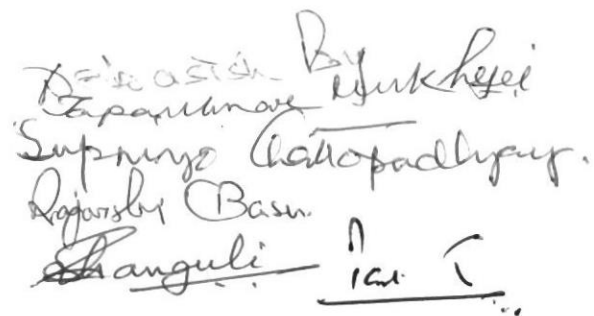 Debasish Roy
Tapan Kumar Mukherjee
Supriyo Chattopadhyay.
Rajarshi Basu.
Ganguli